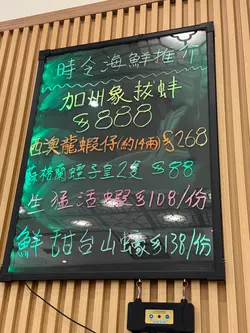 時令海鮮推介
加州象拔蚌
$888
西澳龍蝦仔(約14兩)$268
蘇格蘭蟶子皇2隻 $88
生猛活蝦$108/份
鮮甜台山蠔$138/份